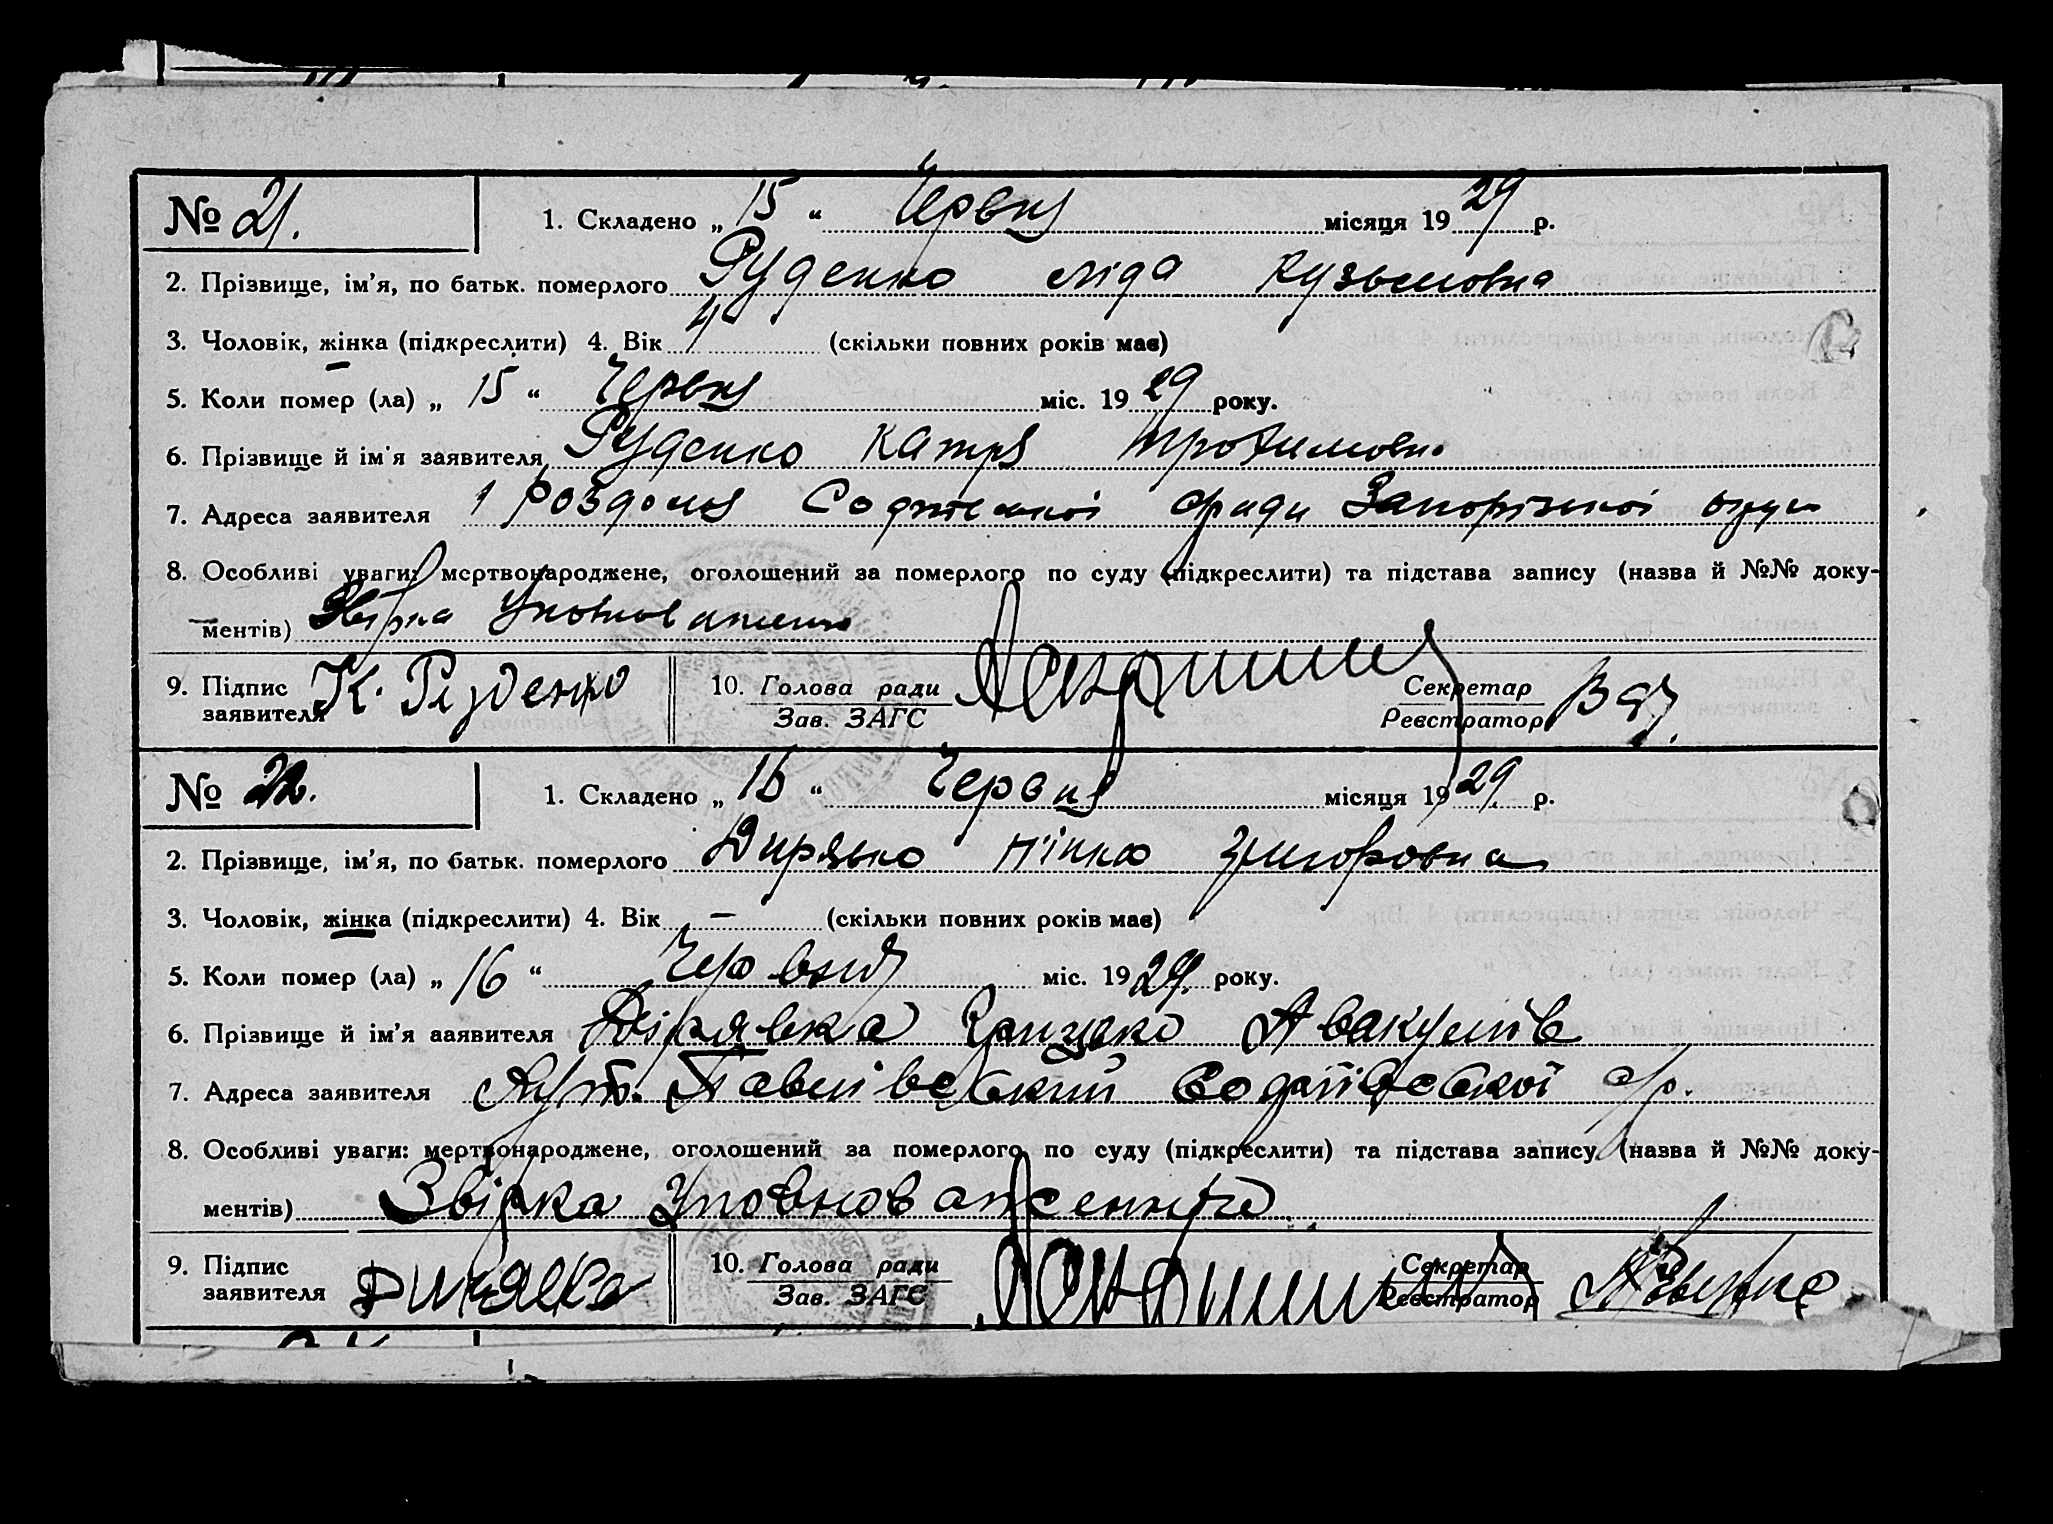 № 21. 1. Складено „ 15 “ Червня місяця 1929 р.
2. Прізвище, ім'я, по батьк. померлого Руденко Ліда Кузьмовна
3. Чоловік, жінка (підкреслити) 4. Вік 4 (скільки повних років має)
5. Коли помер (ла) „ 15 “ Червня міс. 1929 року.
6. Прізвище й ім'я заявителя Руденко Катря Трохимовна
7. Адреса заявителя Роздолля Софіївської с/ради Запорізької округи
8. Особливі уваги: мертвонароджене, оголошений за померлого по суду (підкреслити) та підстава запису (назва й №№ доку-
ментів) Збірка Уповноваженого
9. Підпис заявителя К. Руденко 10. Голова ради Секретар
Зав. ЗАГС Реєстратор
№ 22. 1. Складено „ 16 “ Червня місяця 1929 р.
2. Прізвище, ім'я, по батьк. померлого Нінка
3. Чоловік, жінка (підкреслити) 4. Вік – (скільки повних років має)
5. Коли помер (ла) „ 16 “ Червня міс. 1929. року.
6. Прізвище й ім'я заявителя Дірявка Грицько Авакумів
7. Адреса заявителя Хут. Павлівський Софіївської с/р.
8. Особливі уваги: мертвонароджене, оголошений за померлого по суду (підкреслити) та підстава запису (назва й №№ доку-
ментів) Звірка Уповноваженного
9. Підпис заявителя Дирявка 10. Голова ради Секретар
Зав. ЗАГС Реєстратор